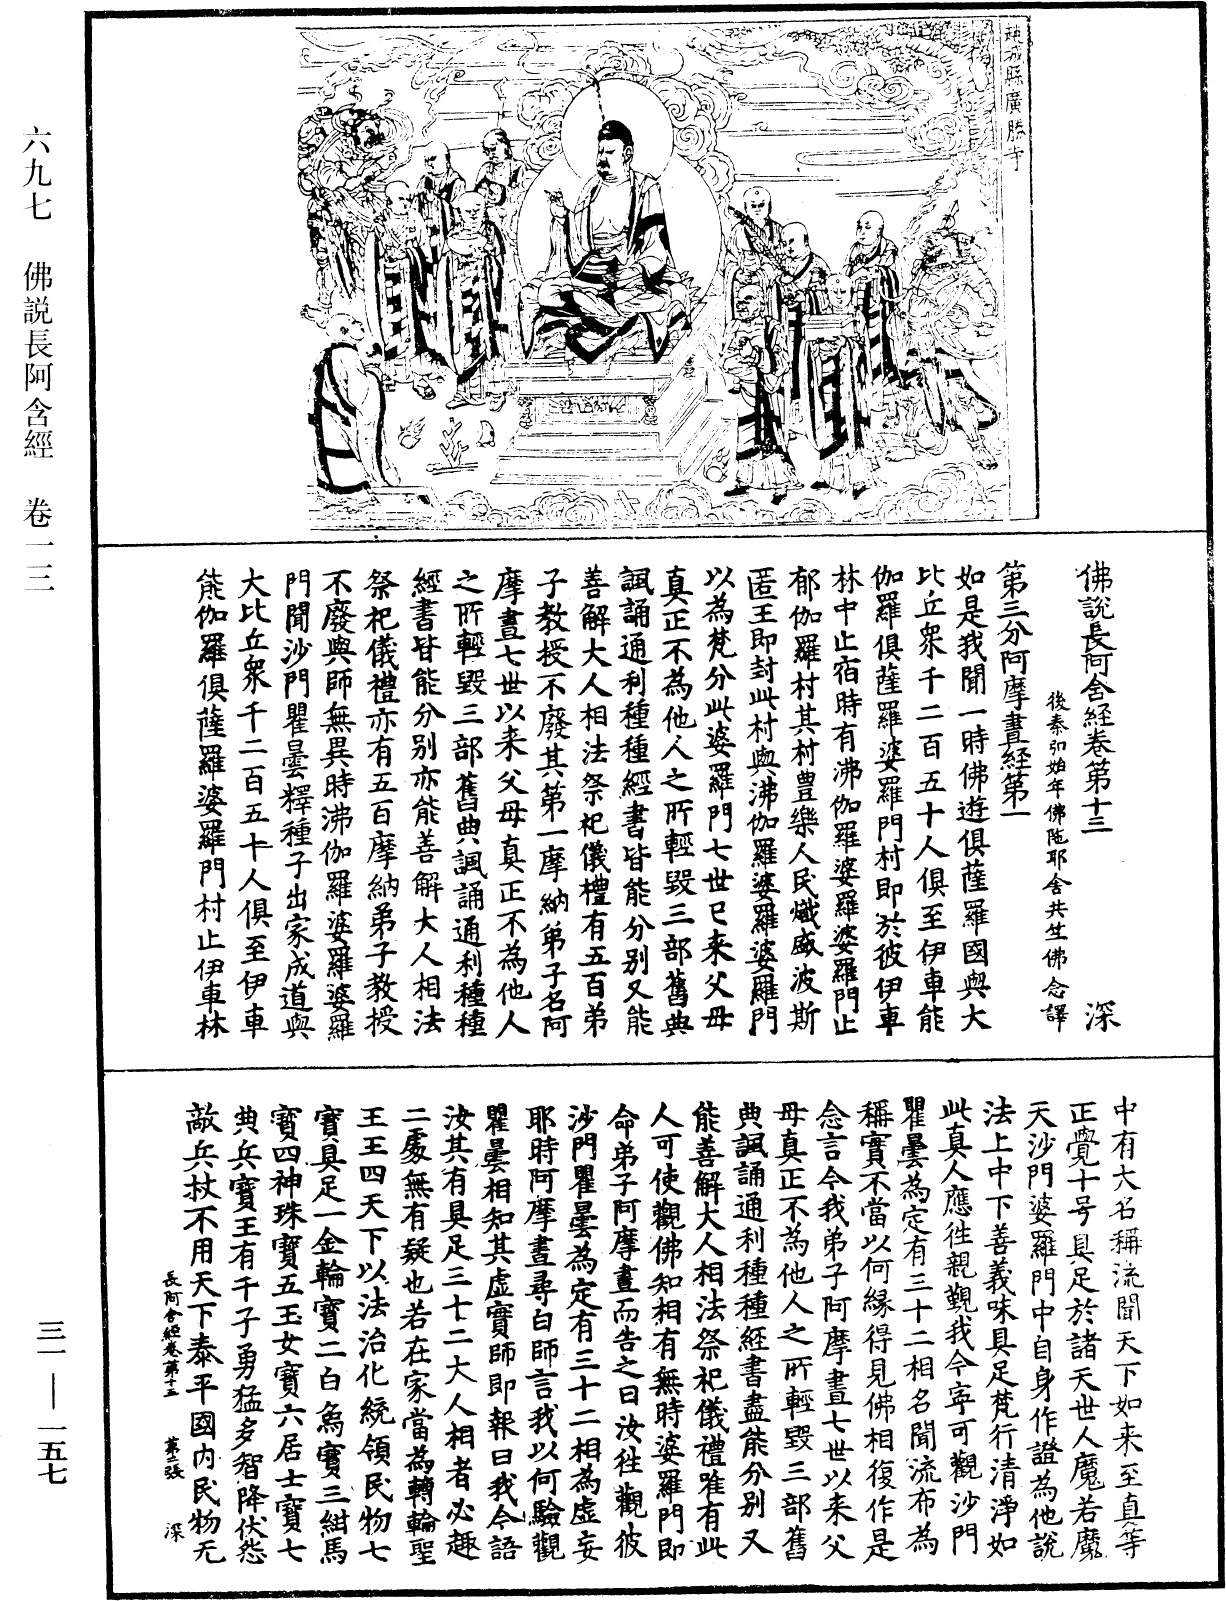 六九七　佛説長阿含經　卷一三
趙城縣廣勝寺
佛說長阿含經卷第十三　深
後秦弘始年佛陁耶舍共竺佛念譯
第三分阿摩晝經第一
如是我聞一時佛遊俱薩羅國與大
比丘眾千二百五十人俱至伊車能
伽羅俱薩羅婆羅門村即於彼伊車
林中止宿時有沸伽羅婆羅婆羅門止
郁伽羅村其村豊樂人民熾盛波斯
匿王即封此村與沸伽羅婆羅婆羅門
以為梵分此婆羅門七世已来父母
真正不為他人之所輕毀三部舊典
諷誦通利種種經書皆能分別又能
善解大人相法祭祀儀禮有五百弟
子教授不廢其第一摩納弟子名阿
摩晝七世以来父母真正不為他人
之所輕毀三部舊典諷誦通利種種
經書皆能分別亦能善解大人相法
祭祀儀禮亦有五百摩納弟子教授
不廢與師無異時沸伽羅婆羅婆羅
門聞沙門瞿曇釋種子出家成道與
大比丘眾千二百五十人俱至伊車
能伽羅俱薩羅婆羅門村止伊車林
中有大名稱流聞天下如来至真等
正覺十号具足於諸天世人魔若魔
天沙門婆羅門中自身作證為他說
法上中下善義味具足梵行清淨如
此真人應徃親覲我今寧可觀沙門
瞿曇為定有三十二相名聞流布為
稱實不當以何緣得見佛相復作是
念言今我弟子阿摩晝七世以来父
母真正不為他人之所輕毀三部舊
典諷誦通利種種經書盡能分別又
能善解大人相法祭祀儀禮唯有此
人可使觀佛知相有無時婆羅門即
命弟子阿摩晝而告之曰汝徃觀彼
沙門瞿曇為定有三十二相為虛妄
耶時阿摩晝尋白師言我以何驗觀
瞿曇相知其虛實師即報曰我今語
汝其有具足三十二大人相者必趣
二處無有疑也若在家當為轉輪聖
王王四天下以法治化統領民物七
寶具足一金輪寶二白象寶三紺馬
寶四神珠寶五玉女寶六居士寶七
典兵寶王有千子勇猛多智降伏怨
敵兵杖不用天下泰平國內民物无
長阿含經卷第十三　第二張　深
三一—一五七